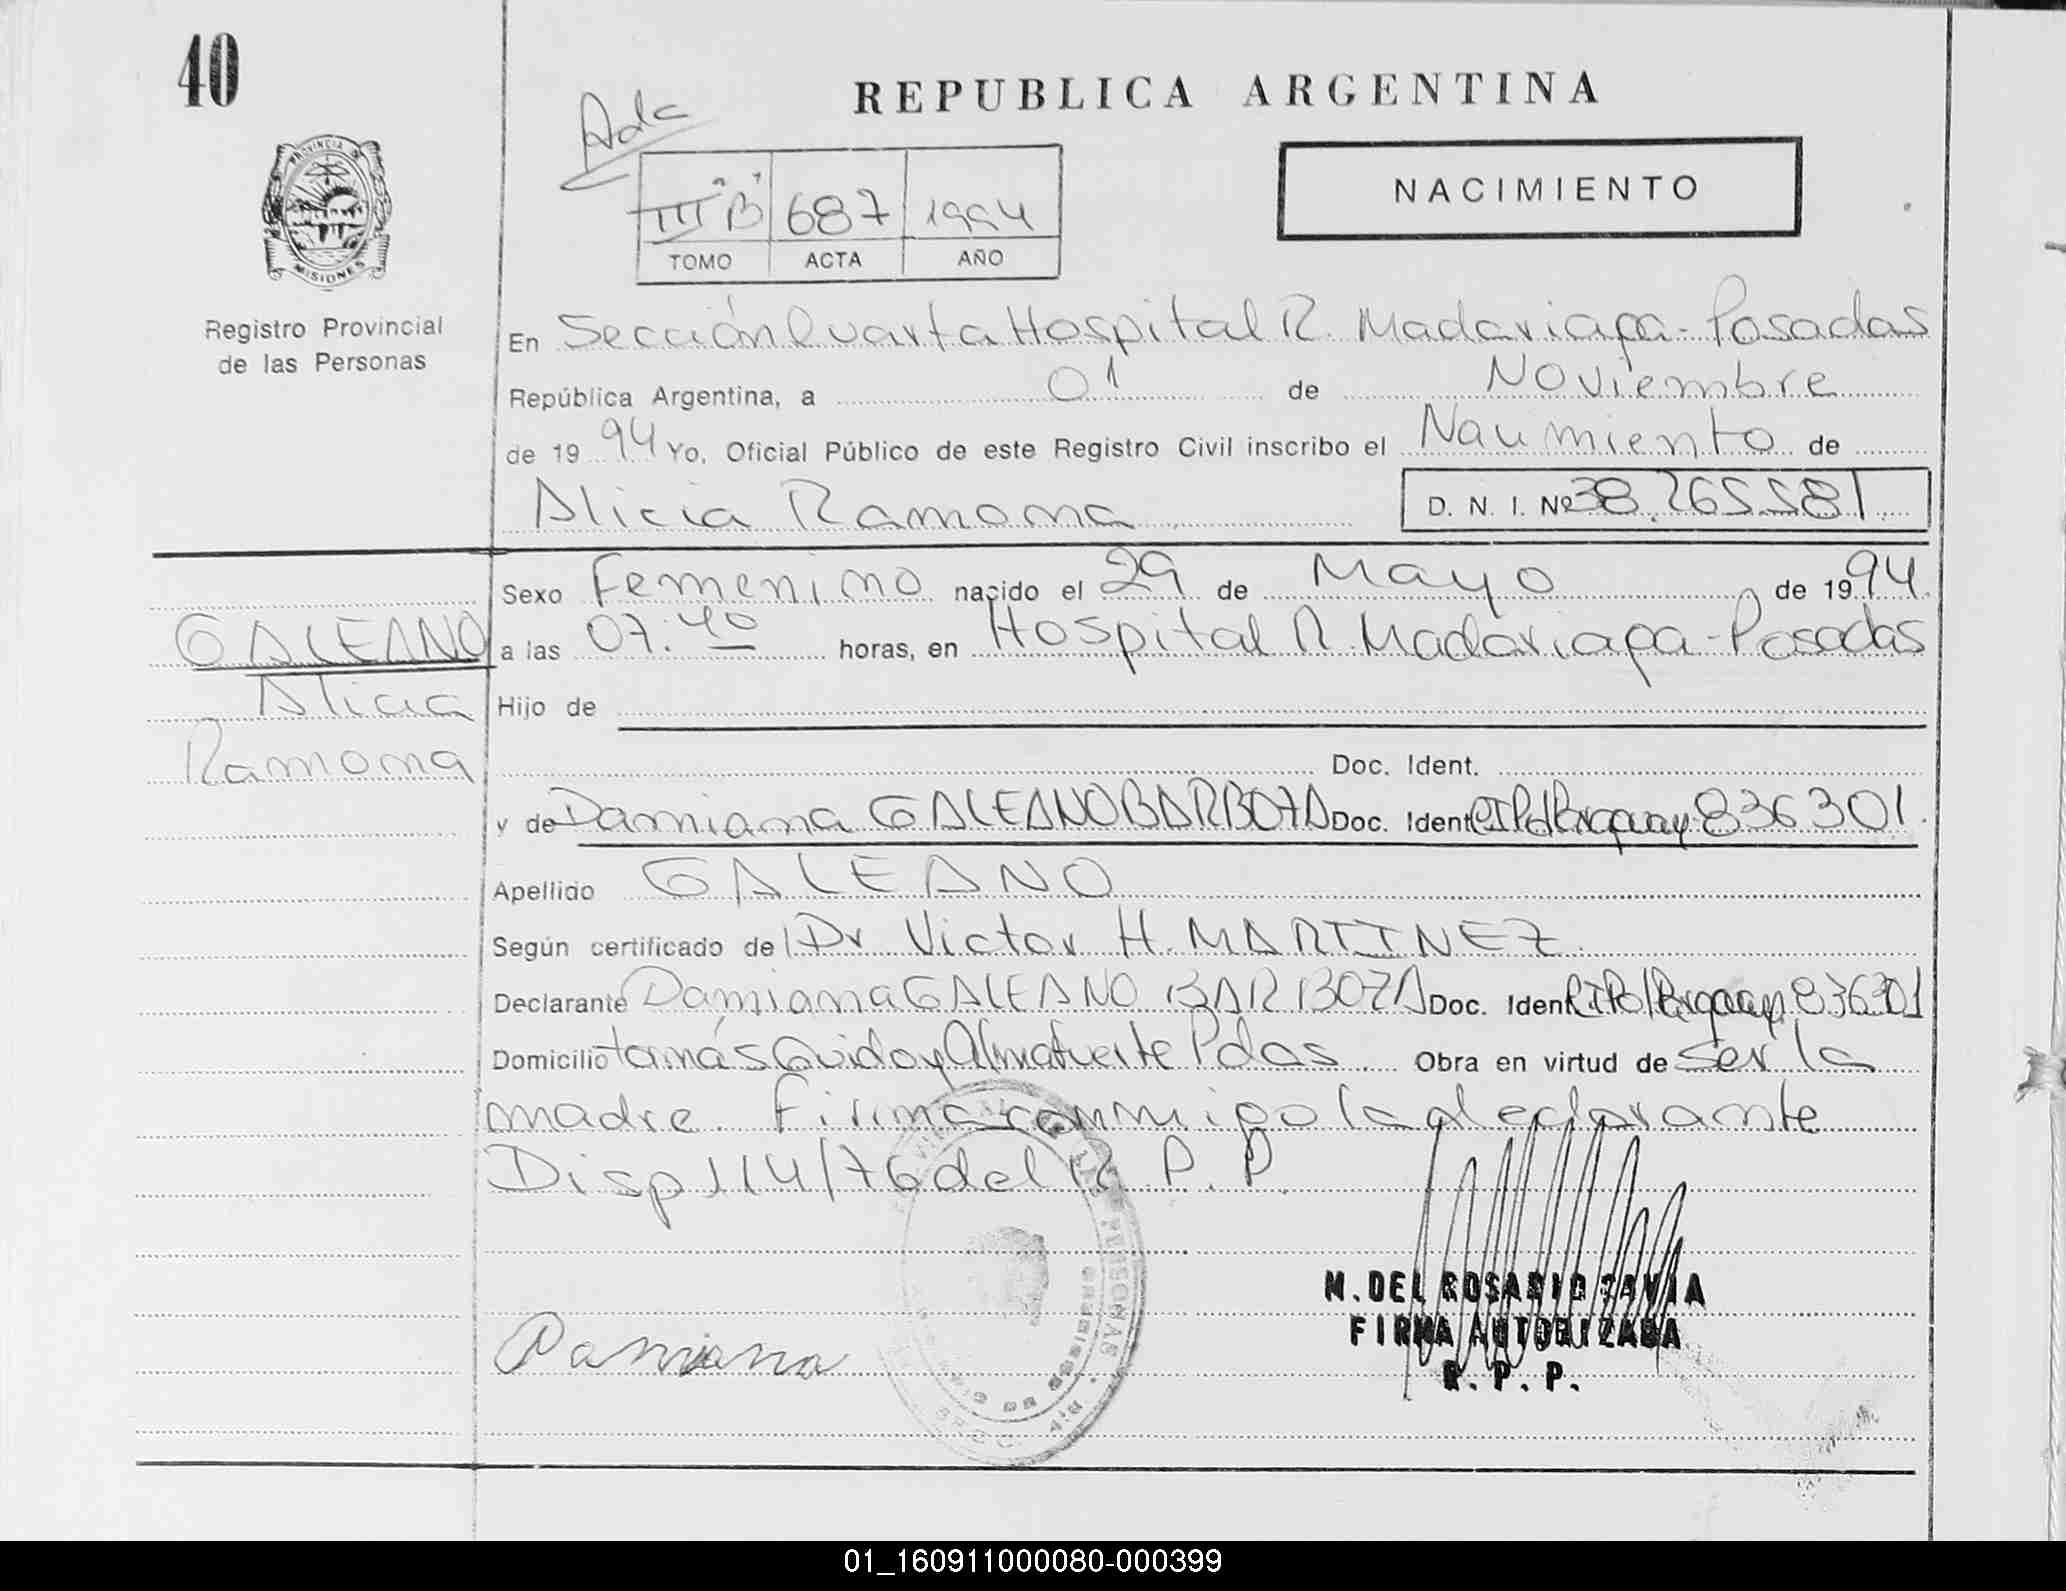 40
REPUBLICA ARGENTINA
Ada
NACIMIENTO
III "B" 687 1994
TOMO ACTA AÑO
PROVINCIA DE
MISIONES
Registro Provincial
de las Personas
En Sección Cuarta Hospital R. Madariaga - Posadas
República Argentina, a 01 de Noviembre
de 19 94 Yo, Oficial Público de este Registro Civil inscribo el Nacimiento de
Alicia Ramona D. N. I. Nº 38.265.581
Sexo Femenino nacido el 29 de Mayo de 19 94
GALEANO
Alicia
Ramona
a las 07.40 horas, en Hospital R. Madariaga - Posadas
Hijo de
Doc. Ident.
y de Damiana GALEANO BARBOZA Doc. Ident. Paraguay 836301
Apellido GALEANO
Según certificado de Dr Victor H. MARTINEZ
Declarante Damiana GALEANO BARBOZA Doc. Ident. Paraguay 836301
Domicilio tomás Guido y Almafuerte Pdas Obra en virtud de ser la
madre. Firma conmigo la declarante
Disp 114/76 del R. P. P.
M. DEL ROSARIO
FIRMA AUTORIZADA
R. P. P.
Damiana
01_160911000080-000399